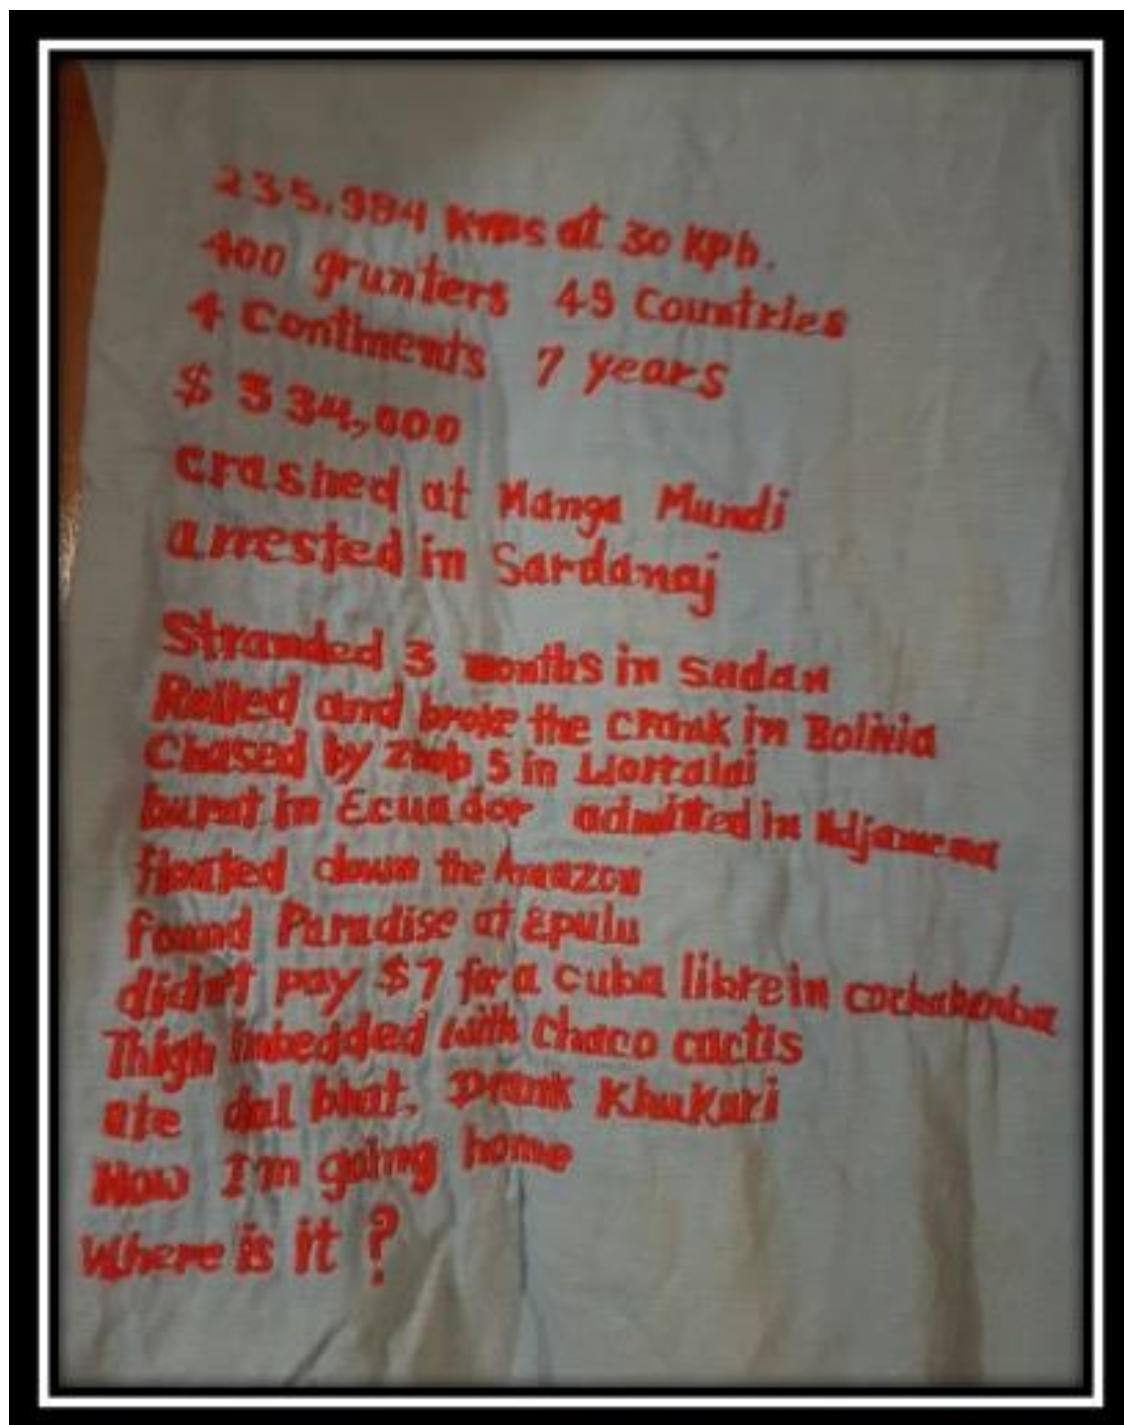 235,984 Kms at 30 Kph.
400 grunters 49 Countries
4 Continents 7 years
$ 334,000
crashed at Manga Mundi
arrested in Sardanaj
Stranded 3 months in Sudan
Rolled and broke the crank in Bolivia
Chased by in
burnt in Ecuador admitted in Ndjamena
floated down the Amazon
found Paradise at Epulu
didn't pay $7 for a cuba libre in cochabamba
Thigh imbedded with chaco cactis
ate dal bhat. Drank Khukuri
Now I'm going home
Where is it ?